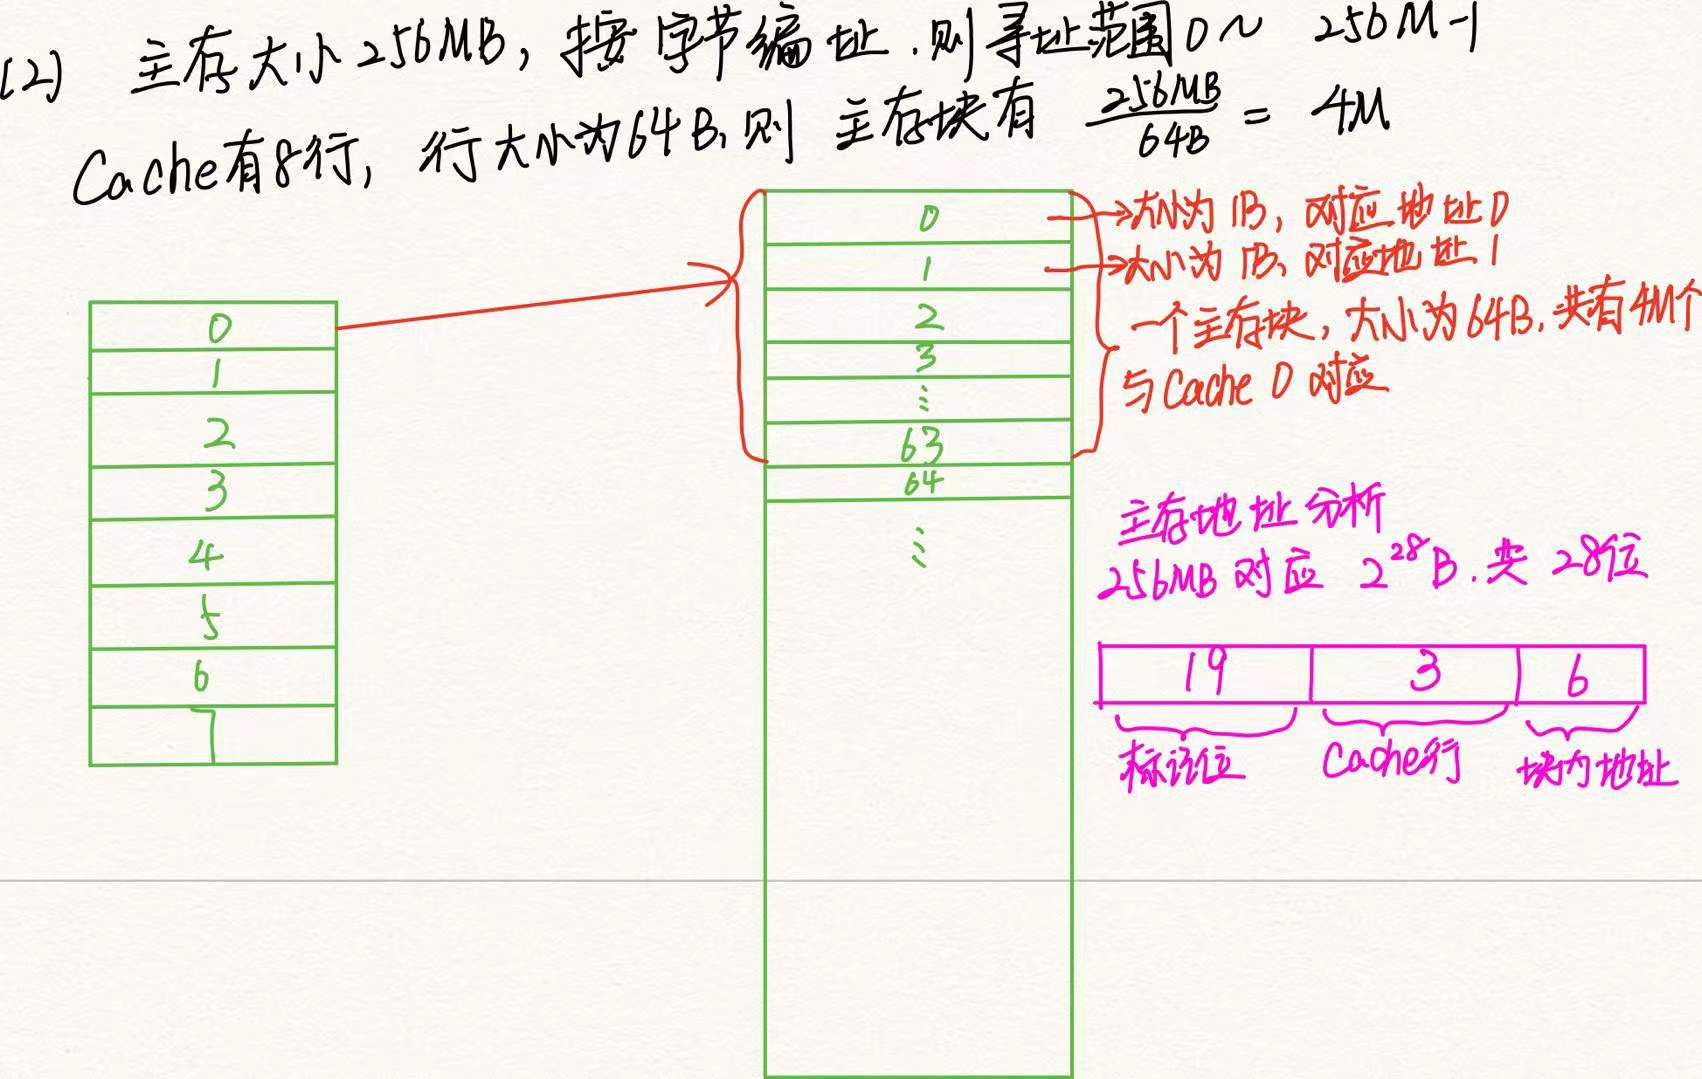 (2) 主存大小256MB，按字节编址.则寻址范围0~ 256M-1
Cache有8行，行大小为64B,则 主存块有 256MB/64B = 4M
0
1
2
3
4
5
6
7
0
1
2
3
⋮
63
64
⋮
→大小为1B，对应地址0
→大小为1B、对应地址1
一个主存块，大小为64B,共有4M个
与Cache 0 对应
主存地址分析
256MB 对应 2^28 B.共 28位
19 3 6
标记位 Cache行 块内地址